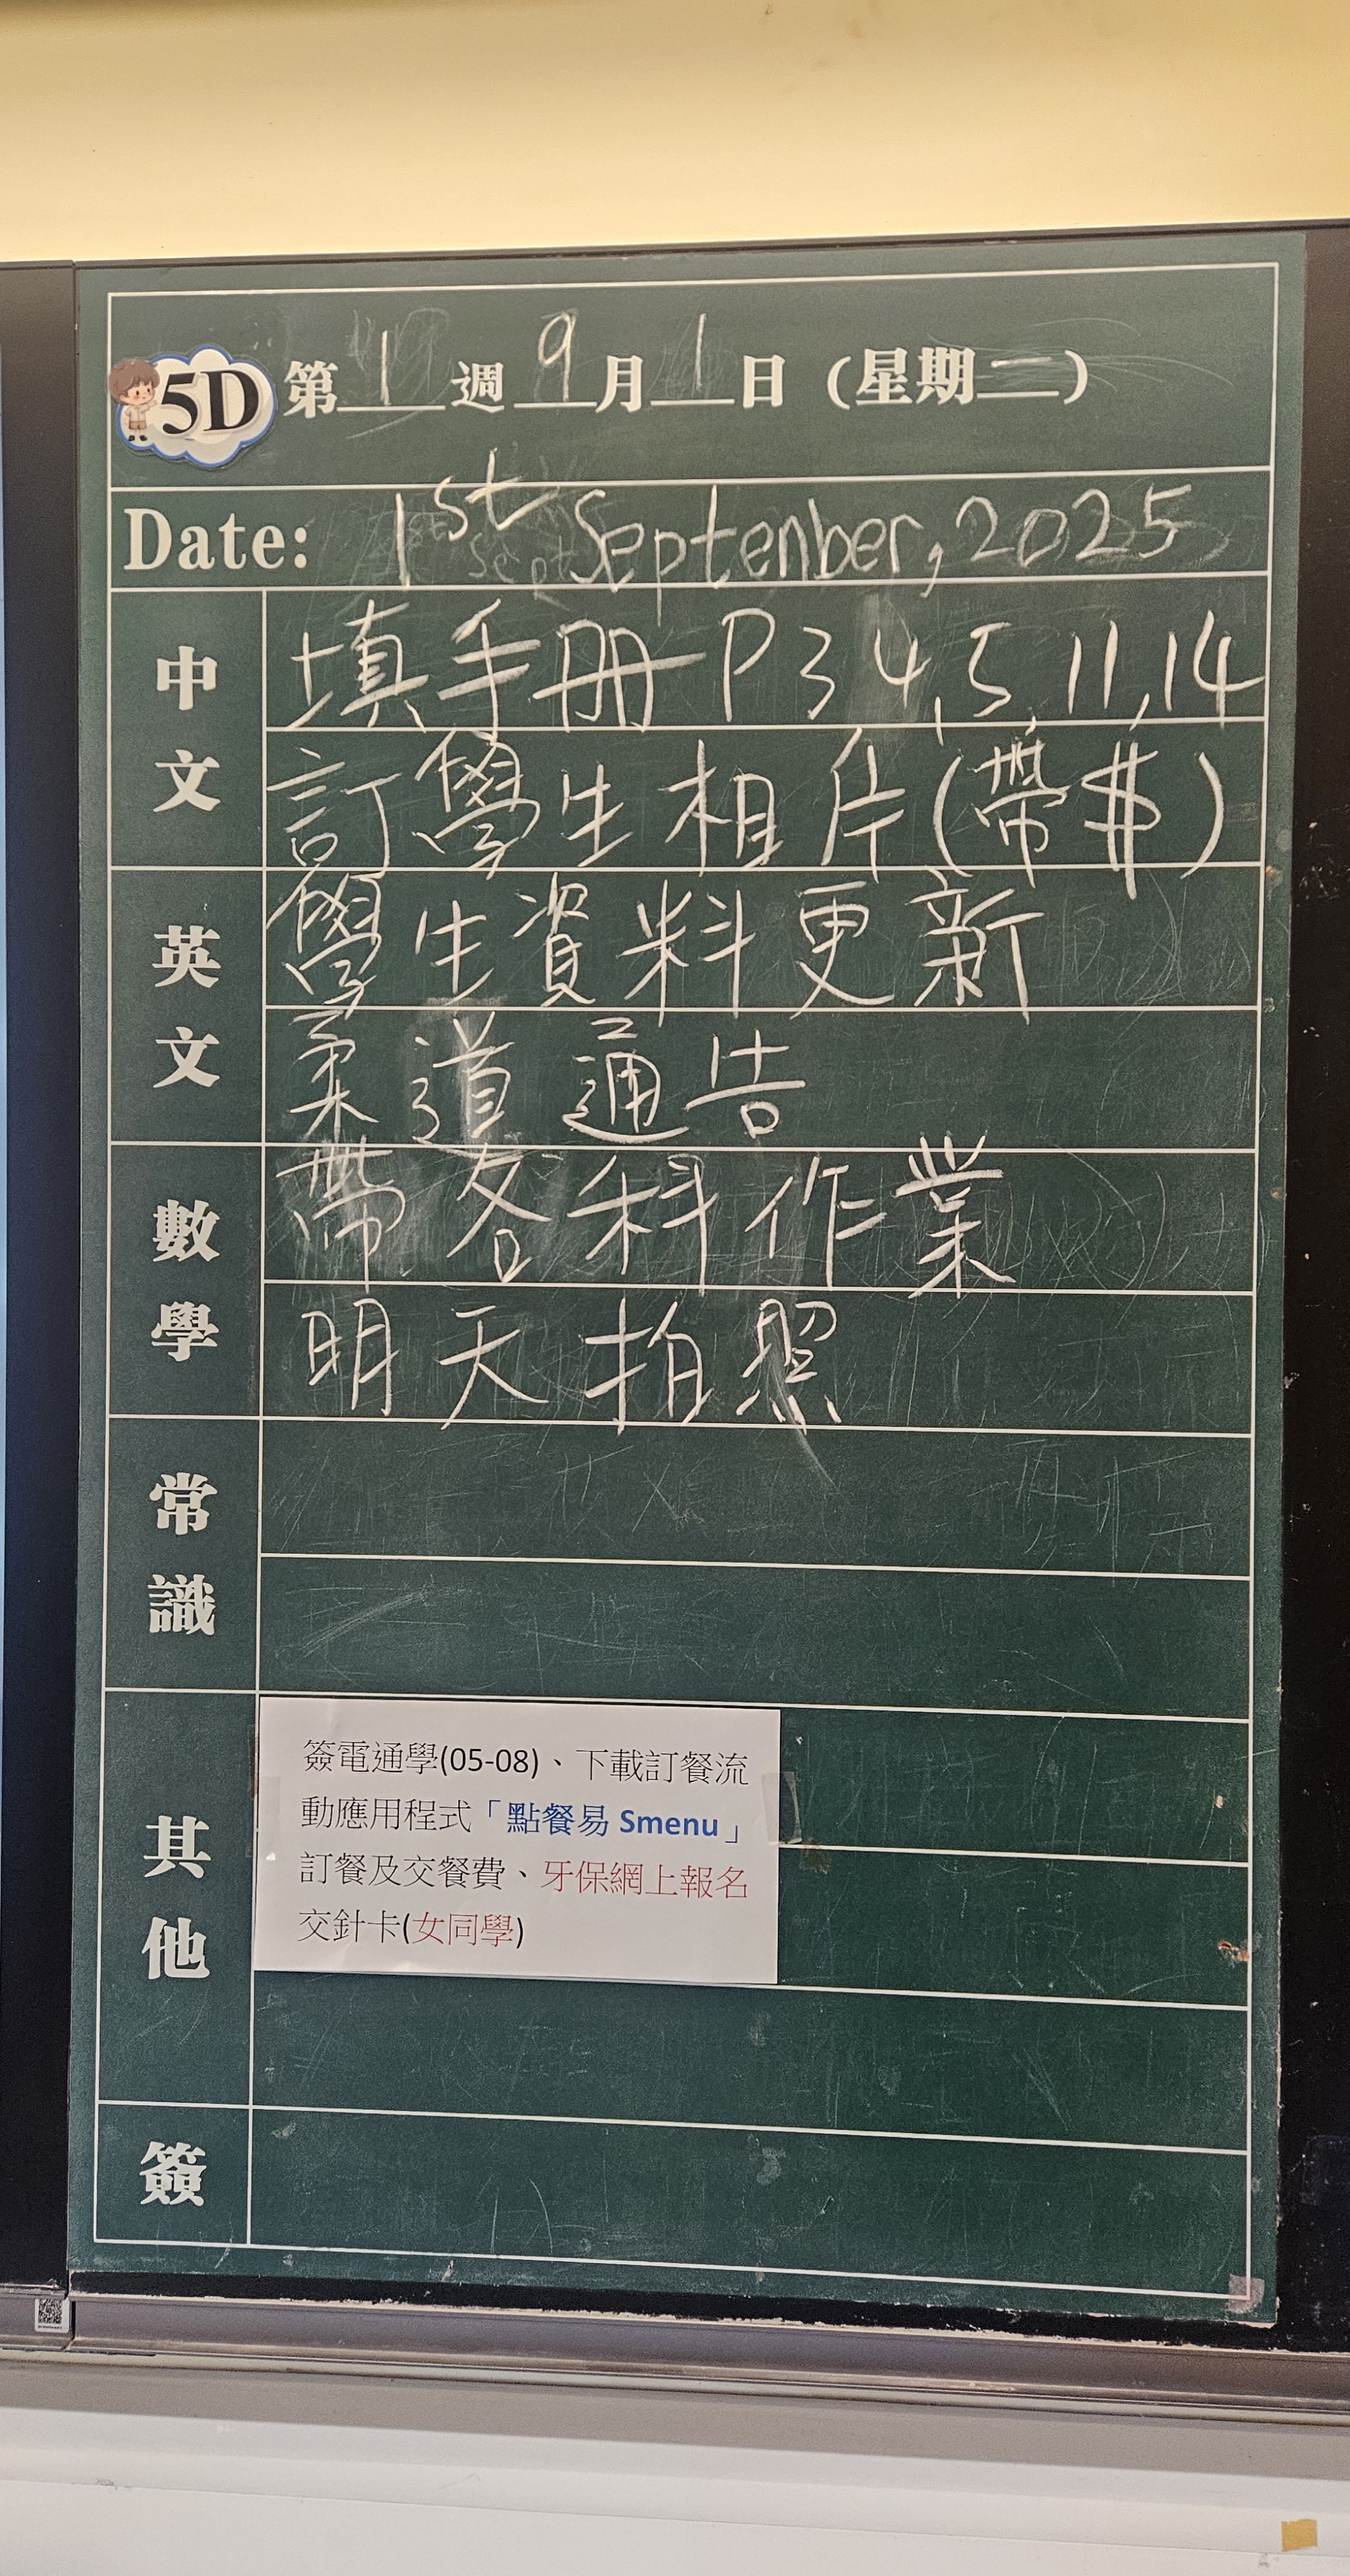 5D 第1週 9月1日 (星期一)
Date: 1st Septenber, 2025
中文
填手冊 P 3 4, 5, 11, 14
訂學生相片(帶$)
英文
學生資料更新
柔道通告
數學
帶各科作業
明天拍照
常識
其他
簽電通學(05-08)、下載訂餐流
動應用程式「點餐易 Smenu」
訂餐及交餐費、牙保網上報名
交針卡(女同學)
簽